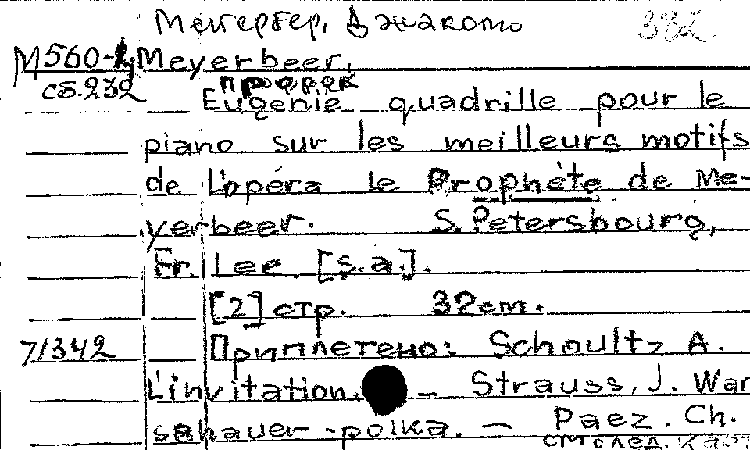 Мейербер, Джакомо 382
М560-4 Meyerbeer,
сб.232 Пророк
Eugenie quadrille pour le
piano sur les meilleurs motifs
de l'opéra le Prophète de Me-
yerbeer. S. Petersbourg,
Fr. Lee [s.a.].
[2] стр. 32см.
71342 Приплетено: Schoultz A.
L'invitation. – Strauss, J. War
schauer-polka. – Paez. Ch.
см след. карт